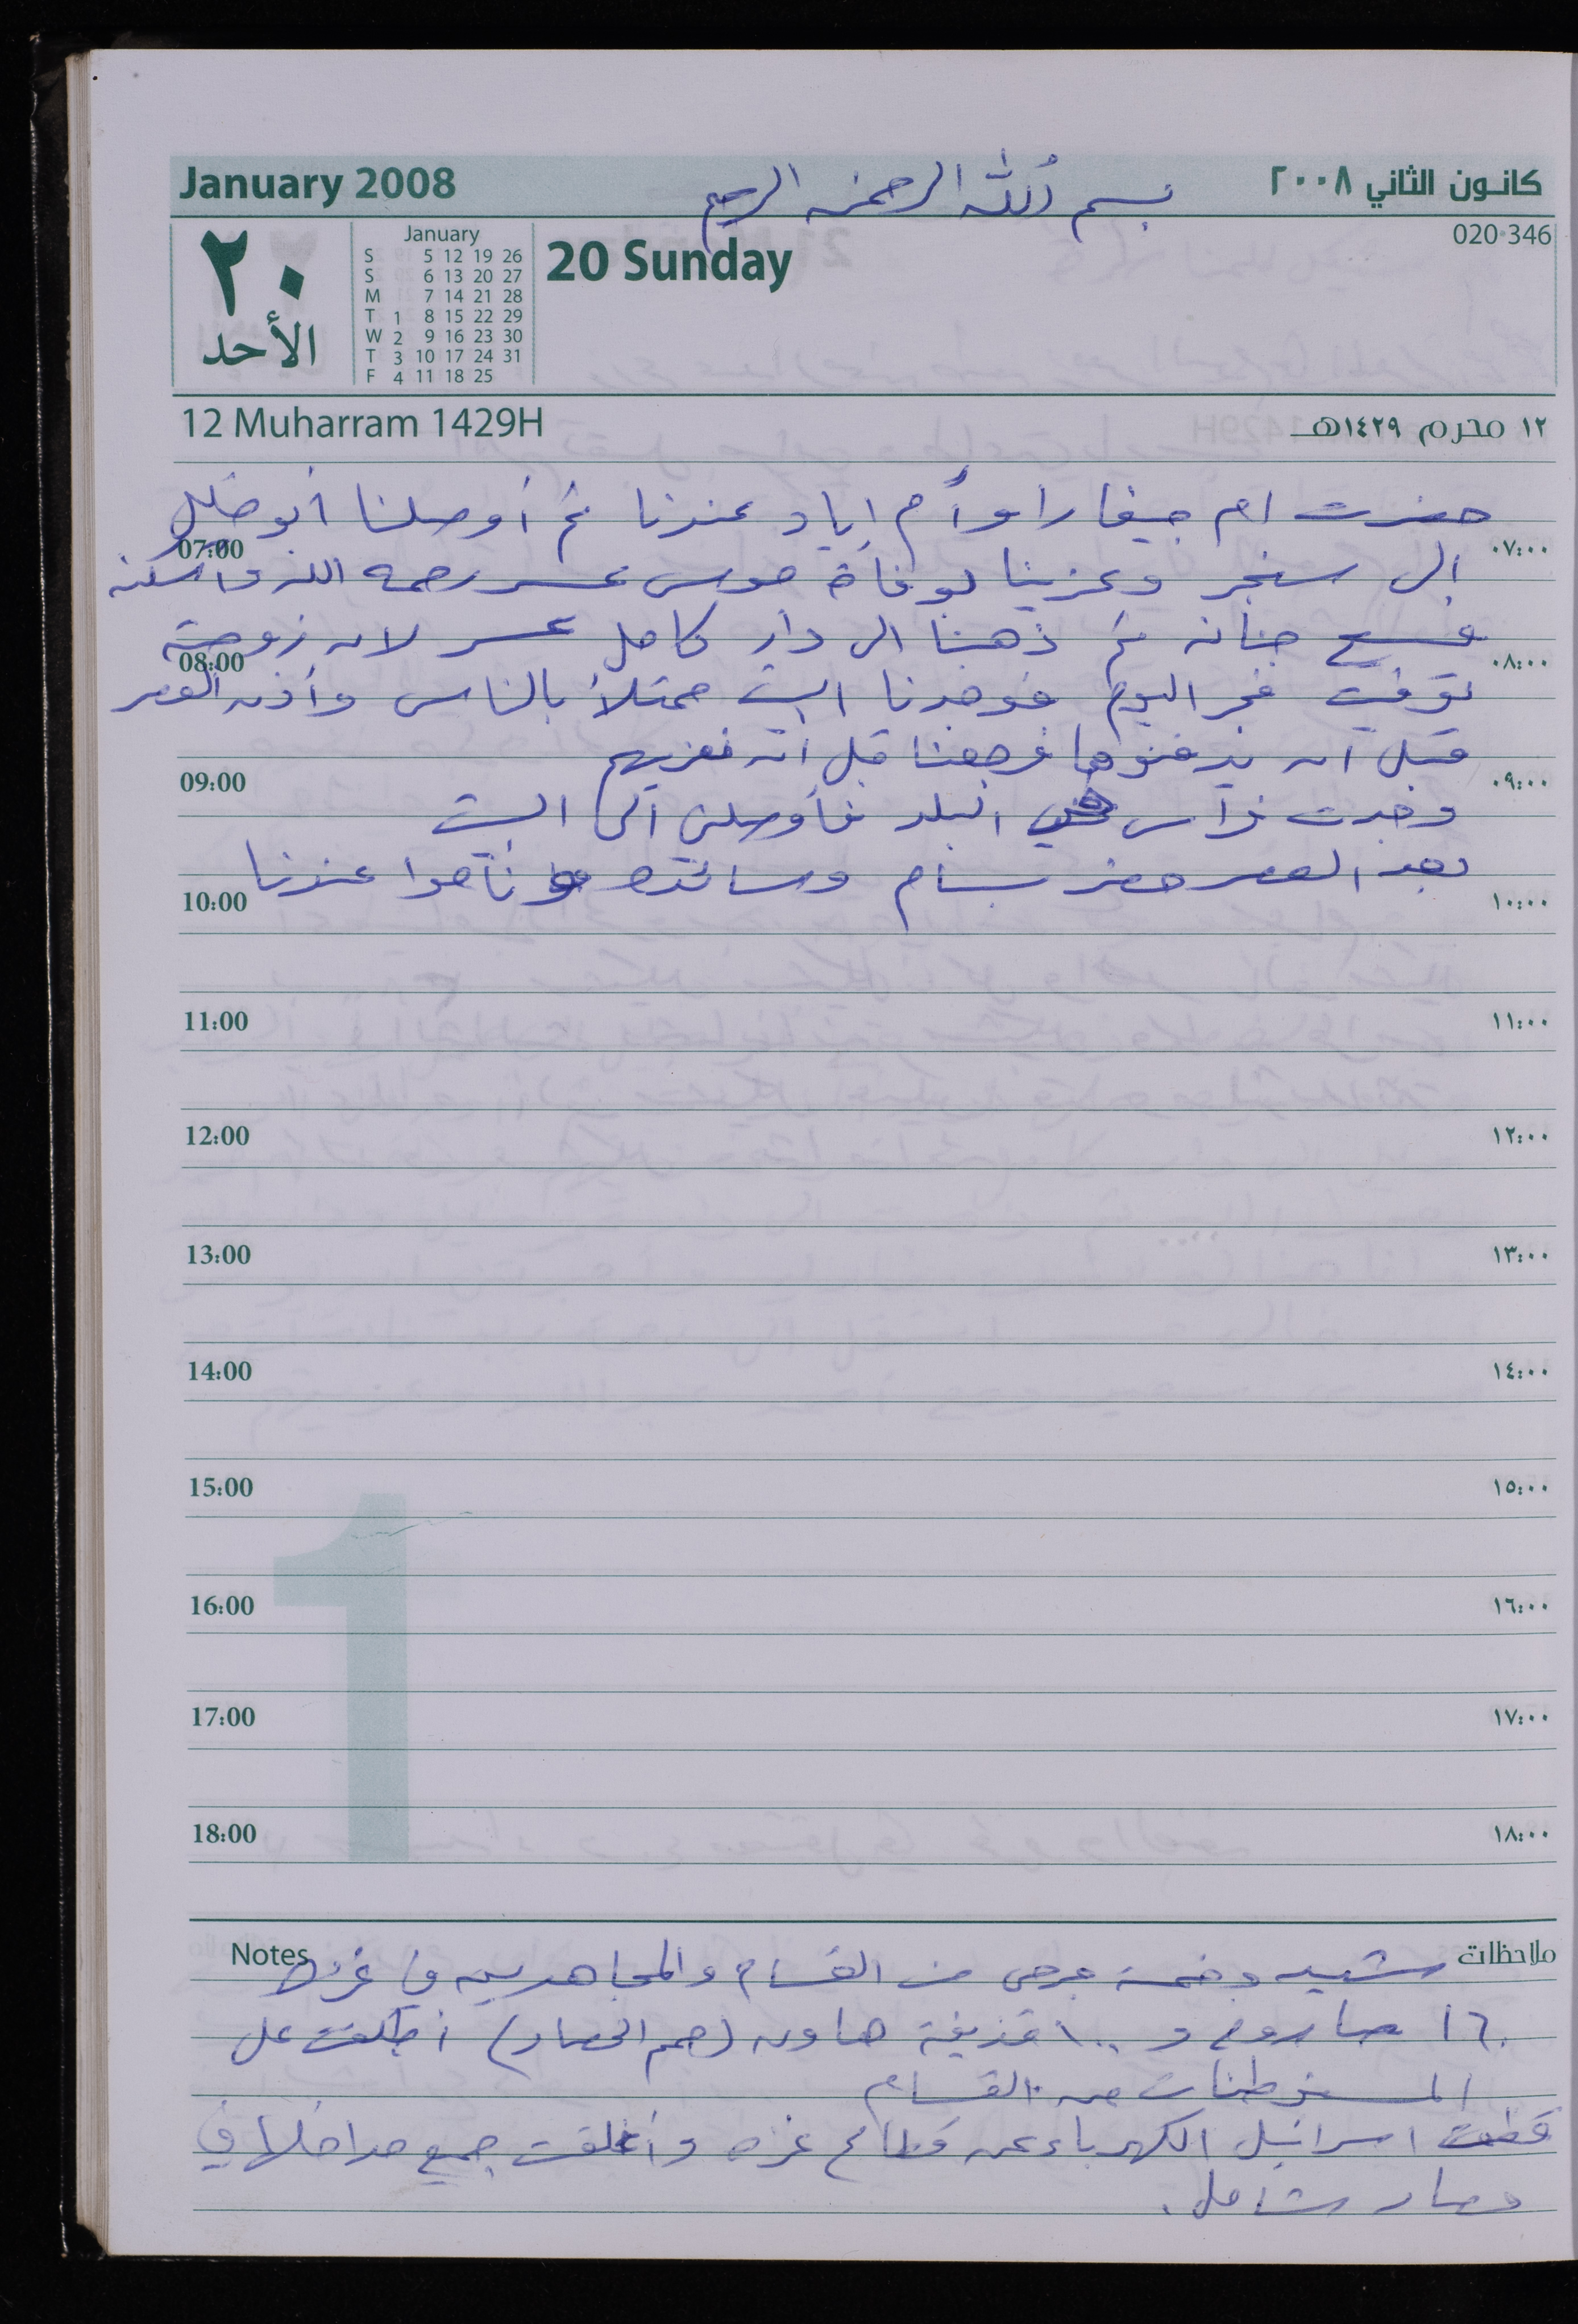 January 2008
بسم الله الرحمن الرحيم
كانون الثاني ٢٠٠٨
020-346
٢٠
الأحد
January
S 5 12 19 26
S 6 13 20 27
M 7 14 21 28
T 1 8 15 22 29
W 2 9 16 23 30
T 3 10 17 24 31
F 4 11 18 25
20 Sunday
12 Muharram 1429H
١٢ محرم ١٤٢٩هـ
حضرت ام جيفارا وأم اياد عندنا ثم أوصلنا أبو خليل
07:00 ٠٧:٠٠
الى سنجر وعزينا بوفاة موسى عسر رحمه الله واسكنه
فسيح جنانه ثم ذهبنا الى دار كامل عسر لان زوجته
08:00 ٠٨:٠٠
توفيت فجر اليوم فوجدنا البيت ممتلأ بالناس وأذن العصر
قبل ان يدفنوها فرجعنا قبل أن نعزيهم
09:00 ٠٩:٠٠
وجدت فراس في البلد فأوصلني الى البيت
بعد العصر حضر بسام وسائده ناموا عندنا
10:00 ١٠:٠٠
11:00 ١١:٠٠
12:00 ١٢:٠٠
13:00 ١٣:٠٠
14:00 ١٤:٠٠
15:00 ١٥:٠٠
16:00 ١٦:٠٠
17:00 ١٧:٠٠
18:00 ١٨:٠٠
1
Notes ملاحظات
شهيد وخمسة جرحى من القسام والمجاهدين في غزه
١٦٠ صاروخ و ١٠٠ قذيفة هاون (حمم الحصار) أطلقت على
المستوطنات من القسام
قطعت اسرائيل الكهرباء عن قطاع غزه وأغلقت جميع مداخلها في
حصار شامل.